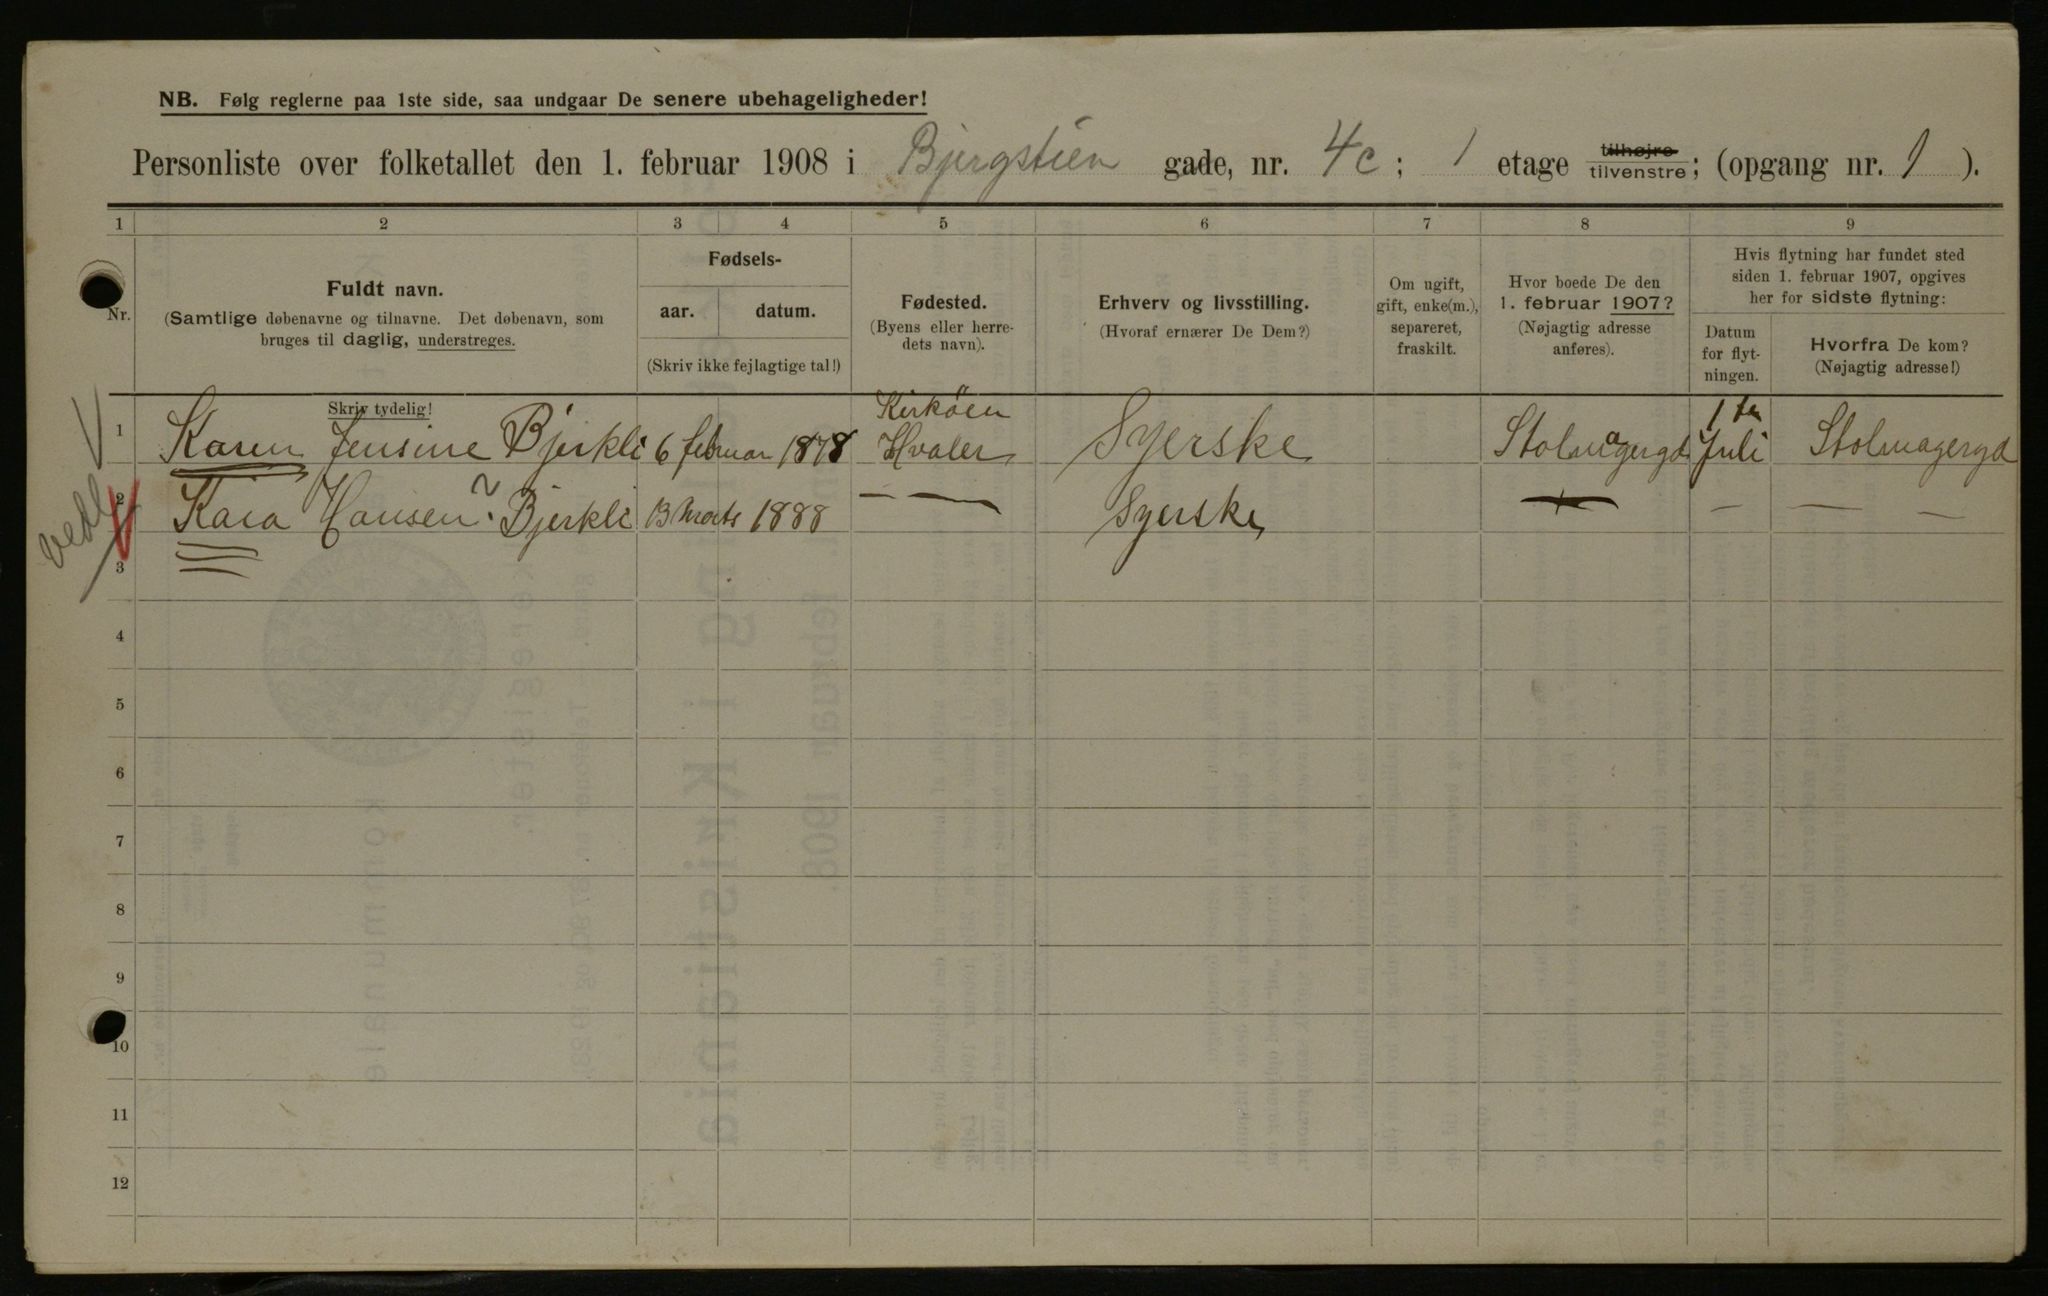 NB. Følg reglerne paa 1ste side, saa undgaar De senere ubehageligheder!
Personliste over folketallet den 1. februar 1908 i Bjergstien gade, nr. 4c; 1 etage tilhøjre tilvenstre; (opgang nr. 1 ).
1 2 3 4 5 6 7 8 9
Nr.
Fuldt navn.
(Samtlige døbenavne og tilnavne. Det døbenavn, som
bruges til daglig, understreges.
Skriv tydelig!
Fødsels-
aar. datum.
(Skriv ikke fejlagtige tal!)
Fødested.
(Byens eller herre-
dets navn).
Erhverv og livsstilling.
(Hvoraf ernærer De Dem?)
Om ugift,
gift, enke(m.),
separeret,
fraskilt.
Hvor boede De den
1. februar 1907?
(Nøjagtig adresse
anføres).
Hvis flytning har fundet sted
siden 1. februar 1907, opgives
her for sidste flytning:
Datum
for flyt-
ningen.
Hvorfra De kom?
(Nøjagtig adresse!)
1 Karen Jensine Bjerkli 6 februar 1878 Kirköen Hvaler Syerske Stolmagergd 1ste Juli Stolmagergd
2 Kaia Hansen? Bjerkli 13 Marts 1888 — — Syerske — — — —
3
4
5
6
7
8
9
10
11
12